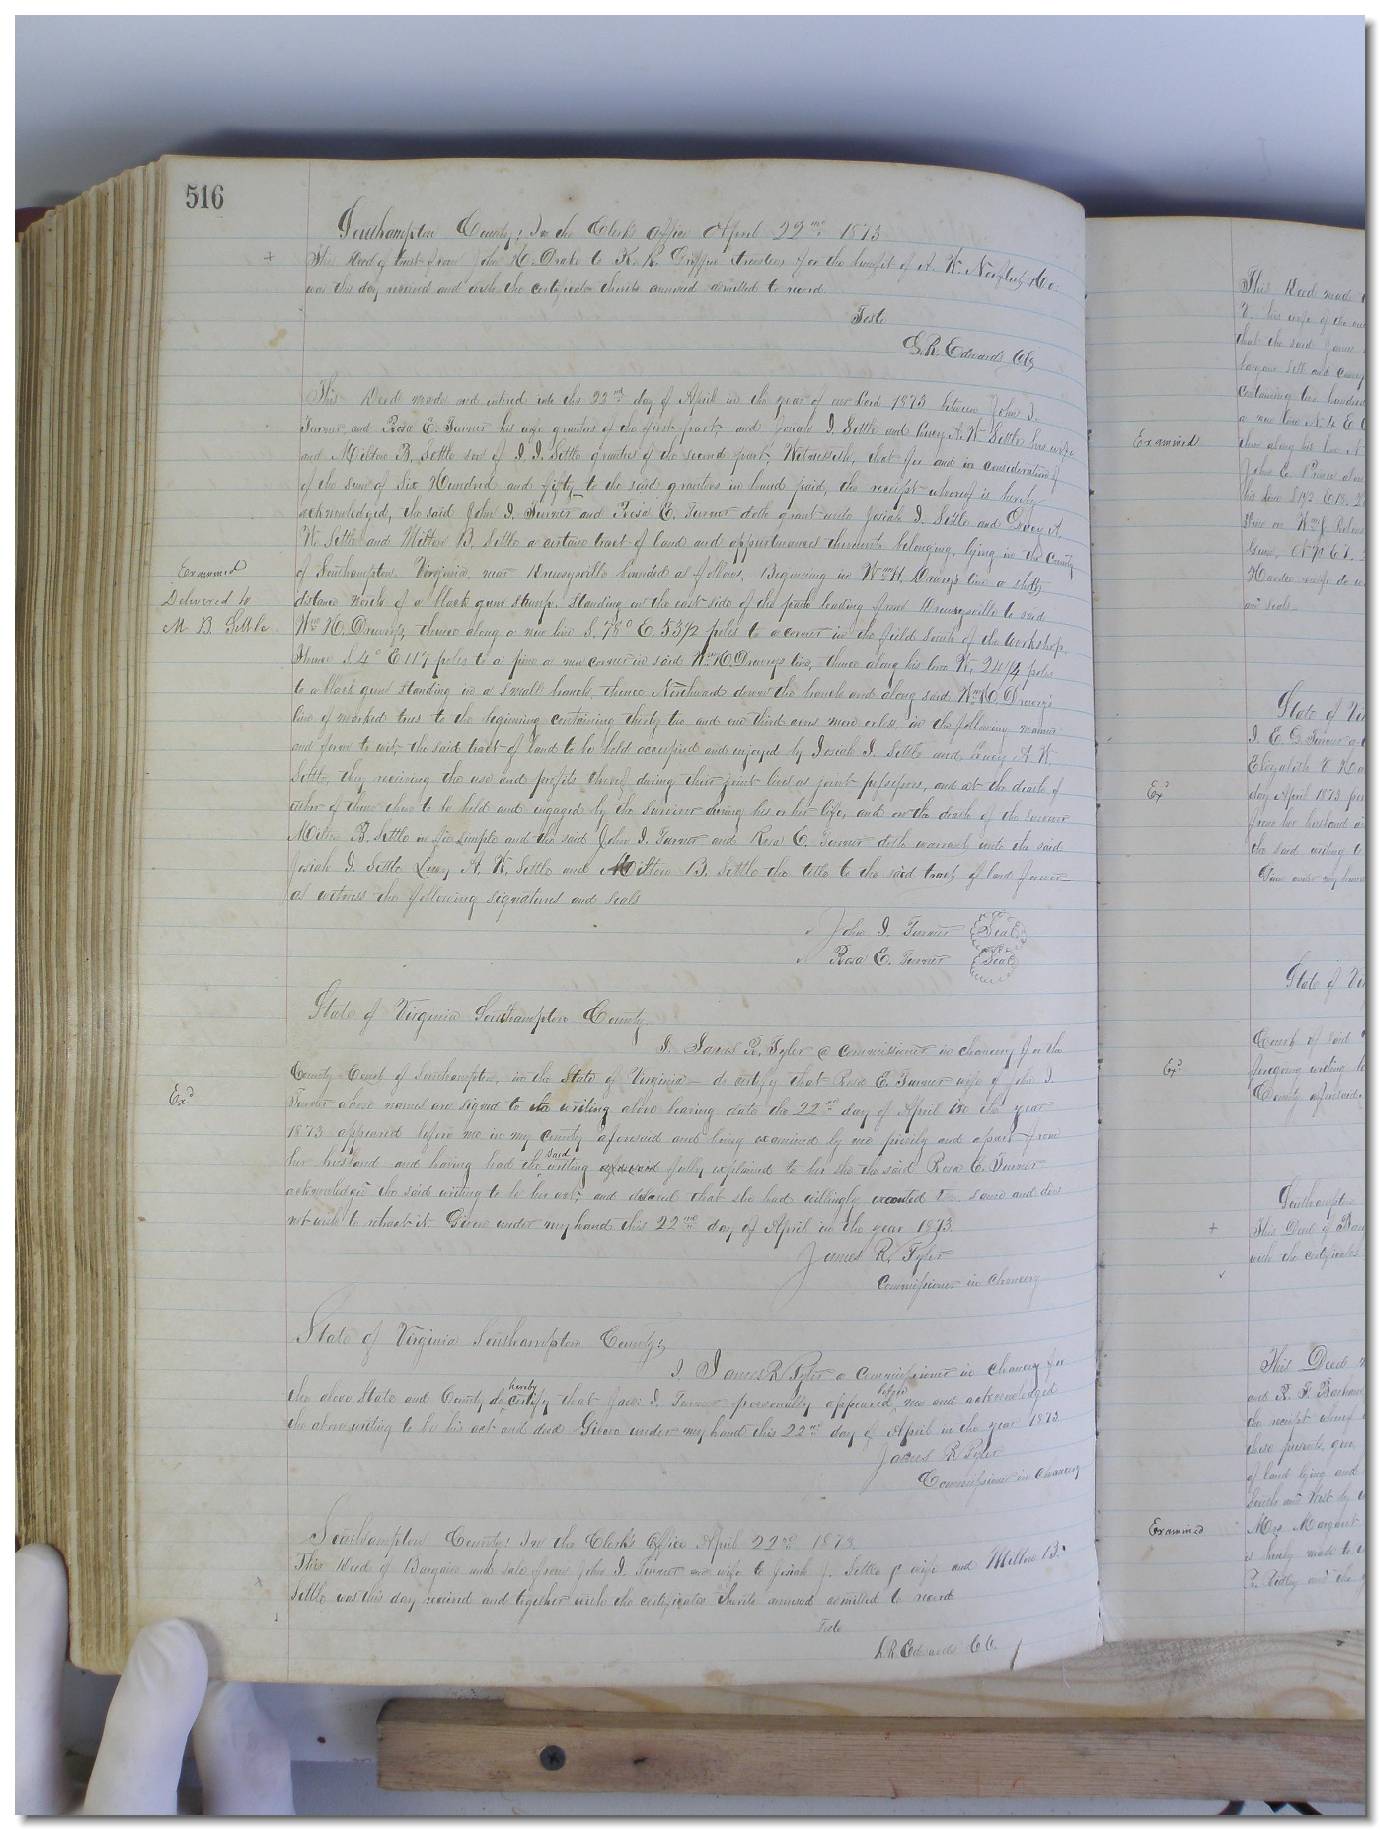 516
Southampton County; In the Clerk's Office April 22nd 1873
This deed of trust from John H. Drake to trustee for the benefit of A. K. & Co.
was this day received and with the certificate thereto annexed admitted to record
Teste
L. R. Edwards CC
This Deed made and entered into this 22nd day of April in the year of our Lord 1873 between John I.
Turner and Rosa E. Turner his wife grantors of the first part, and Josiah I. Settle and Lucy A. W. Settle his wife
and Milton B. Settle son of J. I. Settle grantees of the second part, Witnesseth, that for and in consideration of
of the sum of Six Hundred and fifty to the said grantors in hand paid, the receipt whereof is hereby
acknowledged, the said John I. Turner and Rosa E. Turner doth grant unto Josiah I. Settle and Lucy A.
W. Settle and Milton B. Settle a certain tract of land and appurtenances thereunto belonging, lying in the County
of Southampton Virginia near Drewrysville bounded as follows, Beginning in Wm H. Drewry's line a short
distance north of a black gum stump, standing on the east side of the path leading from Drewrysville to said
Wm H. Drewry's, thence along a new line S. 78° E. 53 1/2 poles to a corner in the field south of the workshop.
Thence S 4° E 117 poles to a pine a new corner in said Wm H. Drewry's line, thence along his line W. 24 1/4 poles
to a black gum standing in a small branch, thence Northward down the branch and along said Wm H. Drewry's
line of marked trees to the beginning containing thirty two and one third acres more or less, in the following manner
and form to wit, the said tract of land to be held occupied and enjoyed by Josiah I. Settle and Lucy A. W.
Settle, they receiving the use and profits thereof during their joint lives as joint possessors, and at the death of
either of them then to be held and engaged by the survivor during his or her life, and on the death of the survivor
Milton B. Settle in fee simple and the said John I. Turner and Rosa E. Turner doth warrant unto the said
Josiah I. Settle Lucy A. W. Settle and Milton B. Settle the title to the said tract of land forever
as witness the following signatures and seals
John I. Turner Seal
Rosa E. Turner Seal
Examined
Delivered to
M B Settle
State of Virginia Southampton County,
I. James R. Tyler a commissioner in chancery for the
County Court of Southampton, in the State of Virginia do certify that Rosa E. Turner wife of John I.
Turner whose names are signed to the writing above bearing date the 22nd day of April in the year
1873 appeared before me in my county aforesaid and being examined by me privily and apart from
her husband and having had the said writing aforesaid fully explained to her she the said Rosa E. Turner
acknowledged the said writing to be her act, and declared that she had willingly executed the same and does
not wish to retract it. Given under my hand this 22nd day of April in the year 1873.
James R. Tyler
Commissioner in Chancery
Exd
State of Virginia Southampton County;
I. James R Tyler a Commissioner in chancery for
the above State and County do hereby certify that I. Turner personally appeared before me and acknowledged
the above writing to be his act and deed Given under my hand this 22nd day of April in the year 1873.
James R Tyler
Commissioner in Chancery
Southampton County: In the Clerk's Office April 22nd 1873.
This Deed of Bargain and sale from John I. Turner and wife to Josiah J. Settle & wife and Milton B.
Settle was this day received and together with the certificates thereto annexed admitted to record
Teste
L. R. Edwards CC.
This Deed made
his wife of the
that the said James
sell and convey
containing two hundred
a new line N
along his line N
John E.
his line
Examined
State of Vi
I. E. G. Turner
Elizabeth
day April 1873
from her husband
the said writing to
Exd
State of Vi
Court of said
foregoing writing
County aforesaid.
Exd
Southampton
This Deed of Bar
with the certificates
This Deed
and R. F.
the receipt whereof
these presents
of land lying and
South and West by
Mrs. Margaret
is hereby made to
and the
Examined